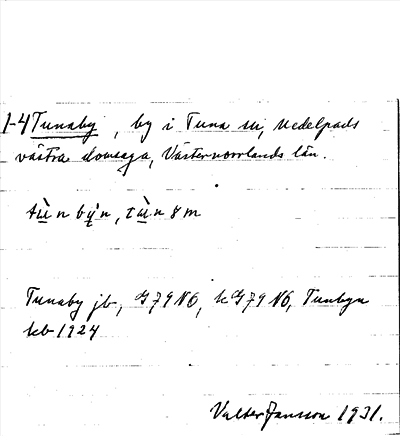 1-4 Tunaby, by i Tuna sn, Medelpads
västra domsaga, Västernorrlands län.
Tunaby jb, G79 NO, kG79 NO, Tunbyn
kb 1924
Valter Jansson 1931.